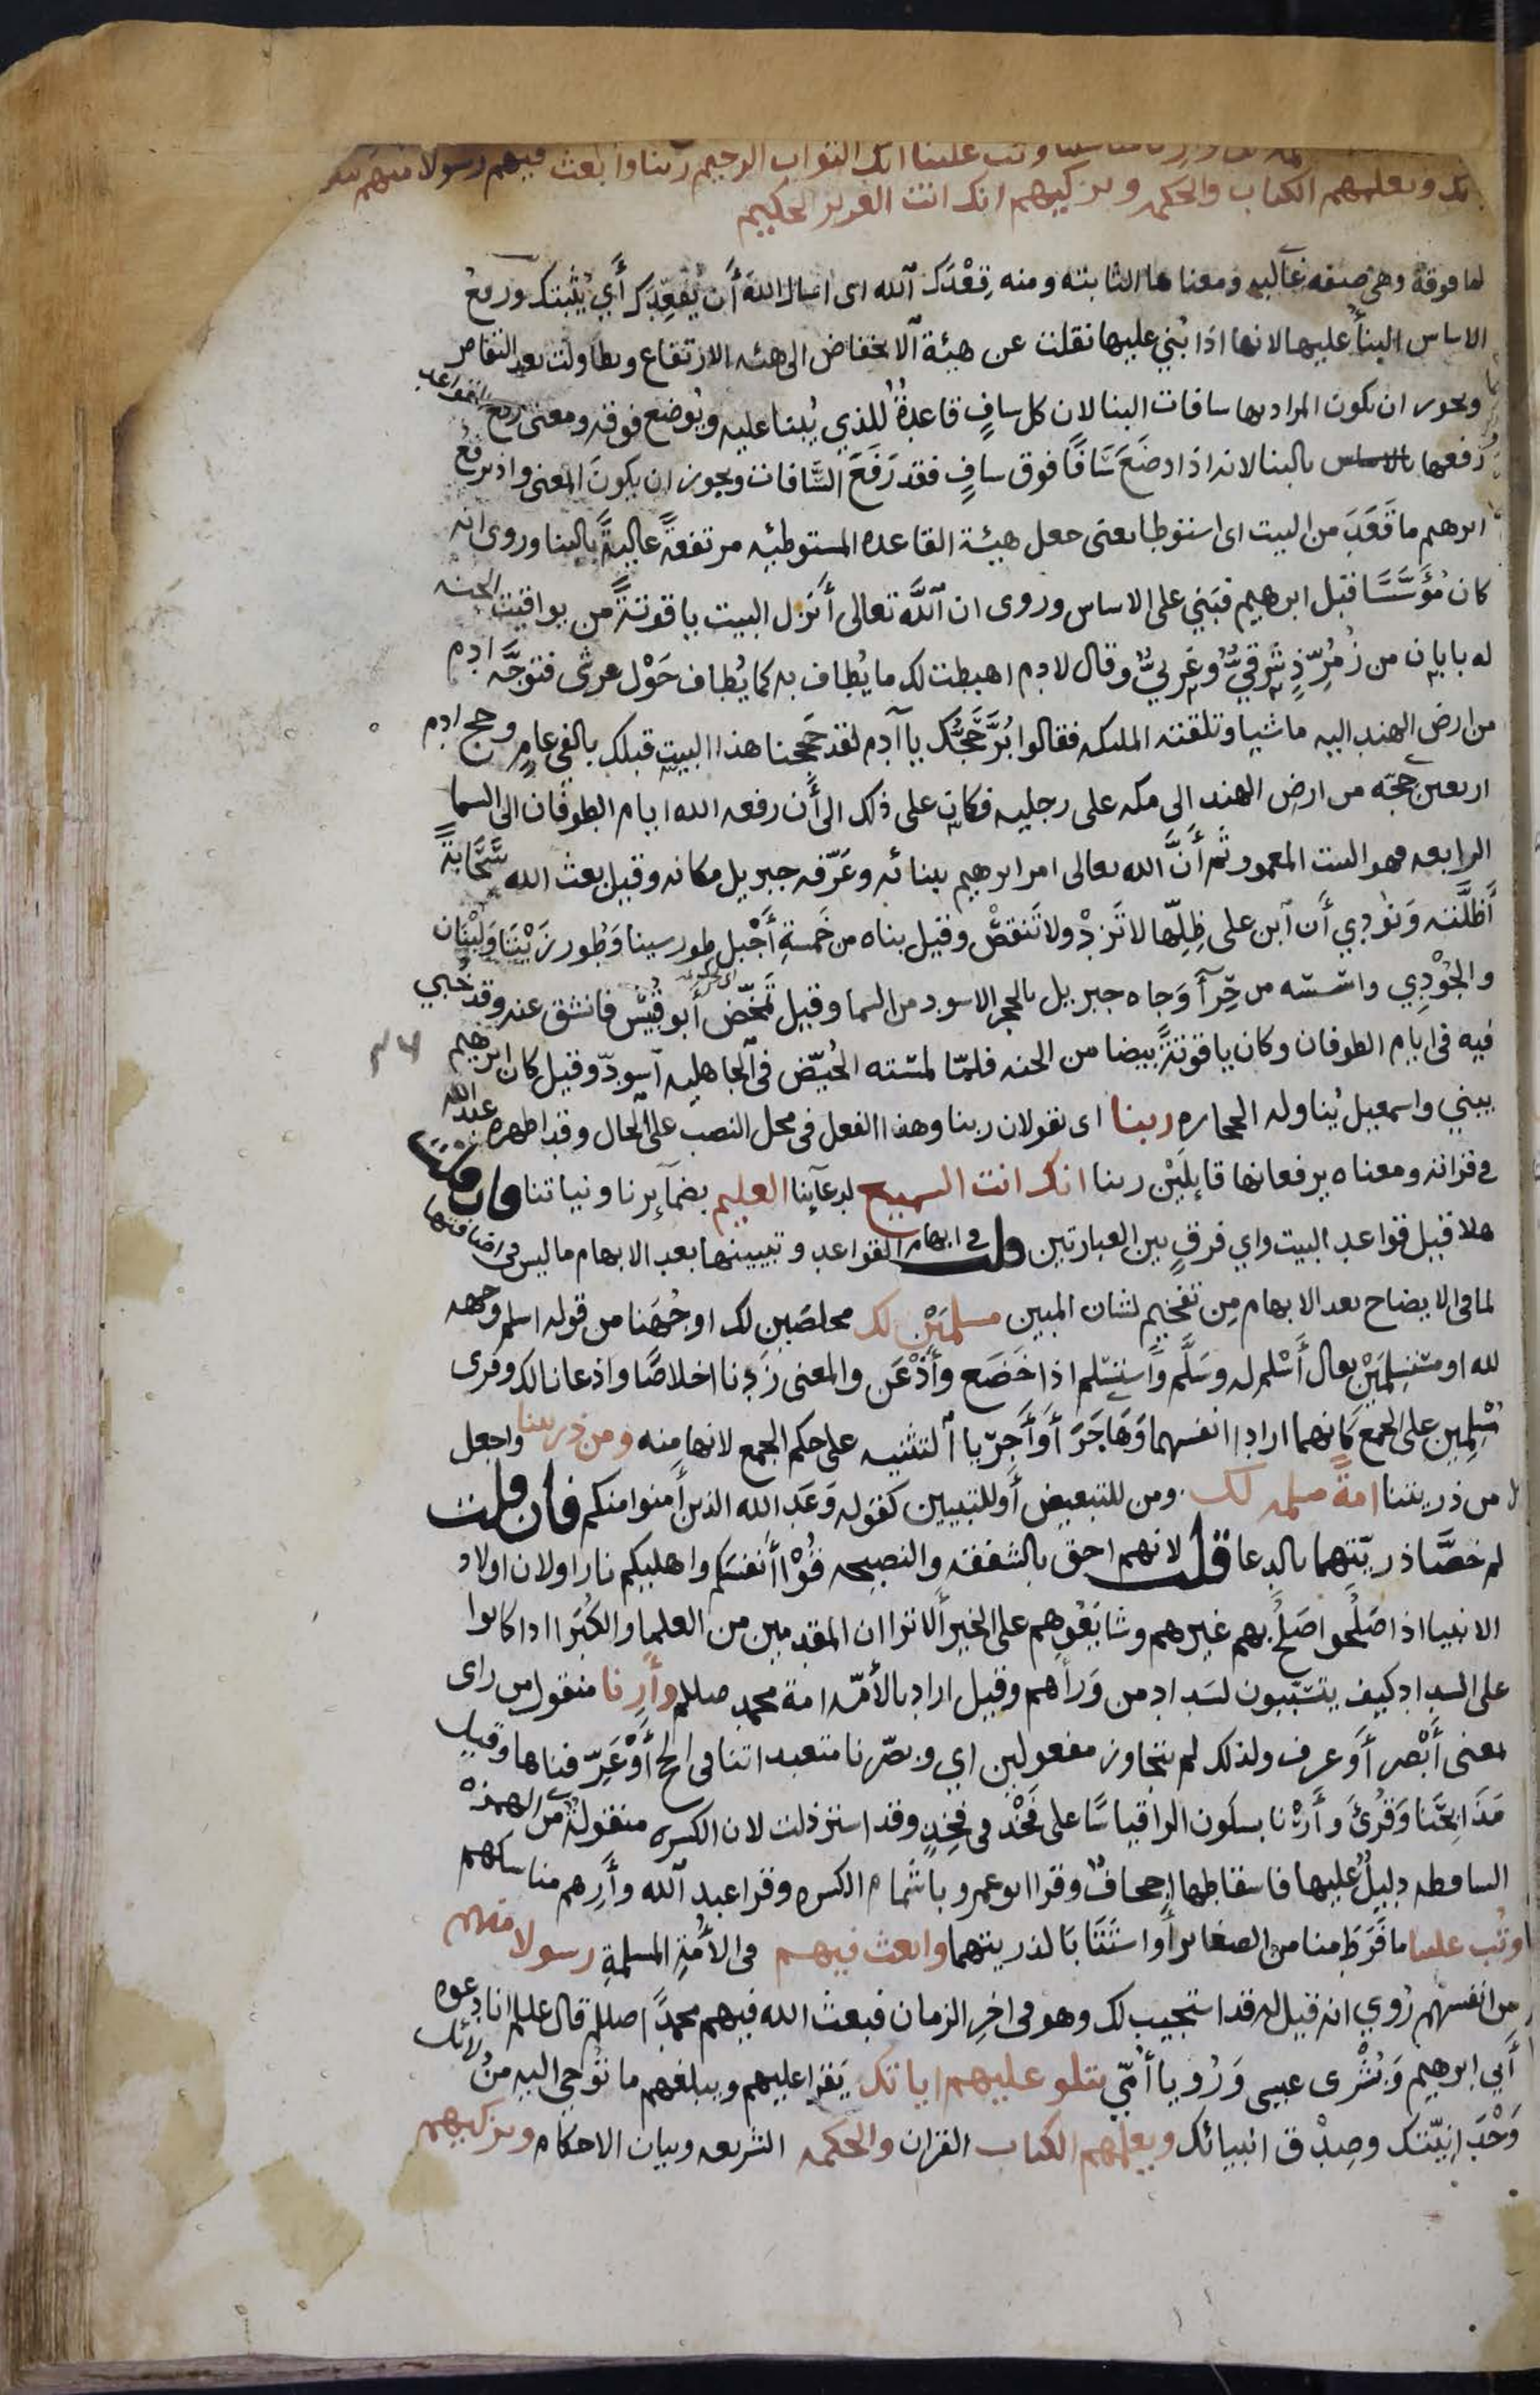 وتب علينا انك التواب الرحيم ربنا وابعث فيهم رسولا منهم يتلو
ويعلمهم الكتاب والحكمه ويزكيهم انك انت العزيز الحكيم
لما فوقه وهي صفه غالبه ومعناها الثابته ومنه قِعْدَكَ الله اى اسال الله أن يُقعِدَكَ أي يُثبتك ورفعُ
الاساس البنأ عليها لانها اذا بُني عليها نقلت عن هيئة الانخفاض الى هئه الارتفاع وتطاولت بعد التقاصر
ويجوز ان يكون المراد بها سافات البنا لان كل سافٍ قاعدةٌ للذي يُبنا عليه ويُوضع فوقه ومعنى رفع القواعد
رفعها بالبنا لانه اذا وضَعَ سَافًا فوق سافٍ فقد رَفَعَ السَّافات ويجوز ان يكونَ المعنى واذ يرفع
ابرهيم ما قَعَدَ من البيت اى استوطا يعنى جعل هيئة القاعده المستوطئه مرتفعةً عاليةً بالبنا وروى انه
كان مُؤَسَّسًا قبل ابرهيم فبَنى على الاساس وروى ان اللَّه تعالى أنزل البيت ياقوتةً من يواقيت الجنه
له بابان من زُمُرّذٍ شرقيٌّ وغربيٌّ وقال لادم اهبطت لك ما يُطاف به كما يُطاف حَوْل عرشى فتوجَّه ادم
من ارض الهند اليه ماشيا وتلقته الملئكه فقالوا بُرَّ حَجُّك يا آدم لقد حَججنا هذا البيت قبلك بالفى عامٍ وحج ادم
اربعين حجّه من ارض الهند الى مكه على رجليه فكان على ذلك الى أن رفعه الله ايام الطوفان الى السما
الرابعه فهو البيت المعمور ثم أنَّ الله تعالى امر ابرهيم ببنائه وعَرّفه جبريل مكانه وقيل بعث الله سَحَابةً
أظلَّته وَنُودِي أن ابن على ظِلِّها لا تَزِدْ ولا تَنقصْ وقيل بناه من خَمسةِ أجْبل طور سينا وَطُور زَيْتَا وَلبْنان
والجُوْدِي واسَّسه من حِرآ وَجاه جبريل بالحجر الاسود من السما وقيل تمَخّض أبو قبيْس فانشق عنه وقد خُبي
فيه فى ايام الطوفان وكان ياقوتةً بيضا من الجنه فلمّا لمسَته الحُيّض فى الجاهليه اسودّ وقيل كان ابرهيم
يبني واسمعيل يُناوله الحجاره ربنا اى يقولان ربنا وهذا الفعل فى محل النصب على الحال وقد اظهره عبد الله
في قرأته ومعناه يرفعانها قايلَيْن ربنا انك انت السميع لدعآينا العليم بضمآيرنا ونياتنا فان قلت
هلا قيل قواعد البيت واي فرقٍ بين العبارتين قلت فى ابهام القواعد وتبيينها بعد الابهام ما ليس فى اضافتها
لما فى الايضاح بعد الابهام مِن تفخيم لشان المبين مسلمَيْن لك مخلصَين لك اوجُهَنا من قوله اسلم وجهه
لله او مستسلمَيْن يعال أَسْلم له وسَلَّم واستسْلم اذا خَضَع وأذْعَن والمعنى زِدنا اخلاصًا واذعانا لك وقرى
مُسْلِمِين على الجمع كانهما ارادا انفسهما وَهَاجَرَ أو أَجرَيا التثنيه على حكم الجمع لانها منه ومن ذريتنا واجعل
من ذريتنا امةً مسلمه لك ومن للتبعيض أو للتبيين كقوله وَعَد الله الذين أمنوا منكم فان قلت
لم خصَّا ذريّتهما بالدعا قلت لانهم احق بالشفقه والنصيحه قُوْا أنفسكم واهليكم نارا ولان اولاد
الانبيا اذا صَلُحوا صَلُح بهم غيرهم وشايَعُوهم على الخير ألا ترا ان المقدمين من العلما والكُبَرا اذا كانوا
على السداد كيف يتسَبّبون لسَداد من وَرأهم وقيل اراد بالأمّه امة محمد صلعم وأرِنا منقول من راى
بمعنى أبْصر أو عرف ولذلك لم يتجاوز مفعولين اي وبصّرنا متعبداتنا فى الحج أوْ عَرّفناها وقيل
مَذَابِحَنا وَقُرئَ وأَرْنا بسكون الرا قياسًا على فَخْذ فى فَخِذٍ وقد استرذلت لان الكسره منقولةٌ من الهمزة
الساقطه دليلٌ عليها فاسقاطها إجحافٌ وقرا ابو عمرو باشمام الكسره وقرا عبد الله وأرِهم مناسكهم
وتُب علينا ما فَرَطَ منا من الصغاير أو استَتَابَا لذريتهما وابعث فيهم فى الأُمّةِ المسلمةِ رسولا منهم
من انفسهم رُوي انه قيل له قد استجيب لك وهو فى اخِرِ الزمان فبعث الله فيهم محمدًا صللم قال عللم انا دعوه
أبي ابرهيم وَبُشْرى عيسى وَرُويا أُمّي يتلو عليهم اياتك يَقرا عليهم ويبلغهم ما تُوحي اليه منْ دلائل
وَحْدَانِيّتك وصِدْق انبيائك ويعلمهم الكتاب القران والحكمه الشريعه وبيان الاحكام ويزكيهم